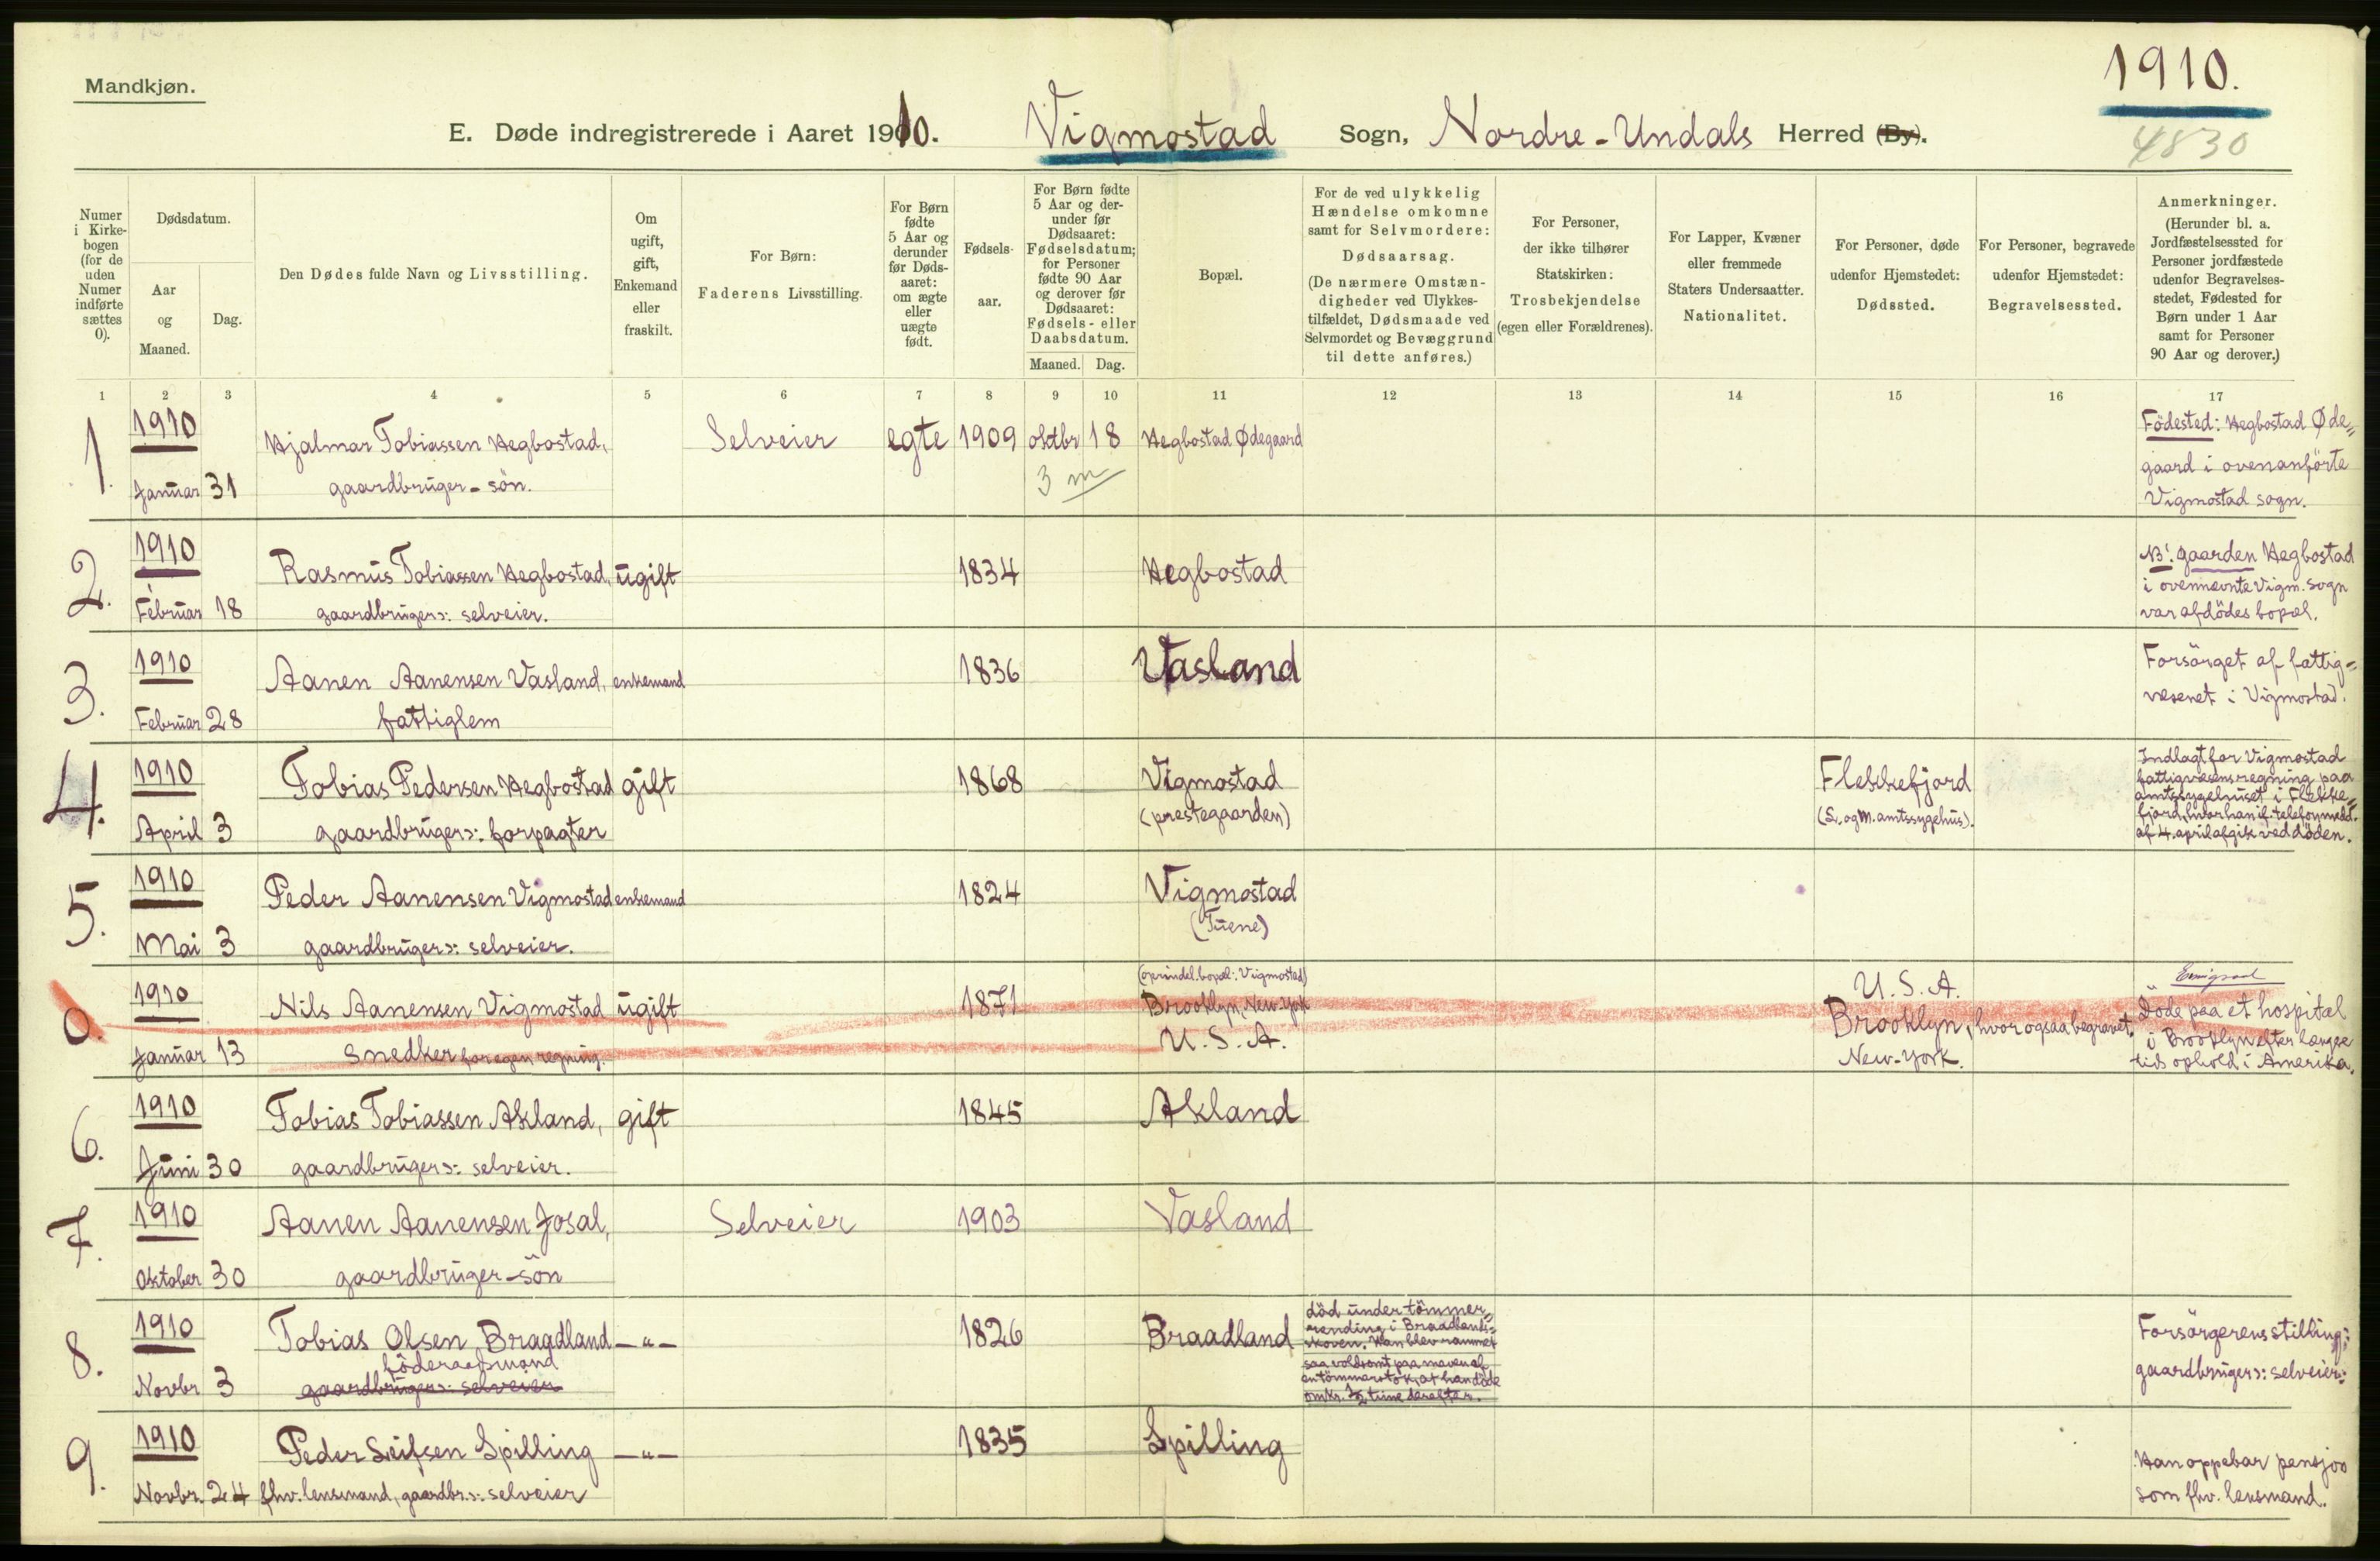 Mandkjøn.
1910.
E. Døde indregistrerede i Aaret 1910. Vigmostad Sogn, Nordre-Undals Herred (By).
4830
Numer i Kirke-bogen (for de uden Numer indførte sættes 0).
Dødsdatum.
Aar og Maaned.
Dag.
Den Dødes fulde Navn og Livsstilling.
Om ugift, gift, Enkemand eller fraskilt.
For Børn: Faderens Livsstilling.
For Børn fødte 5 Aar og derunder før Døds-aaret: om ægte eller uægte født.
Fødsels-aar.
For Børn fødte 5 Aar og der-under før Dødsaaret: Fødselsdatum; for Personer fødte 90 Aar og derover før Dødsaaret: Fødsels- eller Daabsdatum.
Maaned. Dag.
Bopæl.
For de ved ulykkelig Hændelse omkomne samt for Selvmordere: Dødsaarsag. (De nærmere Omstæn-digheder ved Ulykkes-tilfældet, Dødsmaade ved Selvmordet og Bevæggrund til dette anføres.)
For Personer, der ikke tilhører Statskirken: Trosbekjendelse (egen eller Forældrenes).
For Lapper, Kvæner eller fremmede Staters Undersaatter. Nationalitet.
For Personer, døde udenfor Hjemstedet: Dødssted.
For Personer, begravede udenfor Hjemstedet: Begravelsessted.
Anmerkninger. (Herunder bl. a. Jordfæstelsessted for Personer jordfæstede udenfor Begravelses-stedet, Fødested for Børn under 1 Aar samt for Personer 90 Aar og derover.)
1 2 3 4 5 6 7 8 9 10 11 12 13 14 15 16 17
1. 1910 Hjalmar Tobiassen Hegbostad, Selveier egte 1909 oktbr 18 Hegbostad Ødegaard
Januar 31 gaardbruger-sön.
3 m
Födested: Hegbostad Øde-
gaard i ovenanförte
Vigmostad sogn.
2. 1910 Rasmus Tobiassen Hegbostad, ugift 1834 Hegbostad
Februar 18 gaardbruger ɔ: selveier.
NB! gaarden Hegbostad
i ovennævnte Vigm. sogn
var afdödes bopæl.
3. 1910 Aanen Aanensen Vasland, enkemand 1836 Vasland
Februar 28 fattiglem
Forsörget af fattig-
væsenet i Vigmostad.
4. 1910 Tobias Pedersen Hegbostad gift 1868 Vigmostad Flekkefjord
April 3 gaardbruger ɔ: forpagter (prestegaarden) (L. og M. amtssygehus).
Indlagt for Vigmostad
fattigvæsens regning paa
amtssygehuset i Flekke-
fjord, hvor han if. telefonmedd.
af 4. april afgik ved döden.
5. 1910 Peder Aanensen Vigmostad enkemand 1824 Vigmostad
Mai 3 gaardbruger ɔ: selveier. (Tuene)
0. 1910 Nils Aanensen Vigmostad ugift 1871 (oprindel. bopæl: Vigmostad)
Brooklyn, New-York
U.S.A.
Januar 13 Snedker for egen regning.
U.S.A.
Brooklyn, hvor ogsaa begravet.
New-York.
Emigrad
Döde paa et hospital
i Brooklyn efter længre
tids ophold i Amerika.
6. 1910 Tobias Tobiassen Akland, gift 1845 Akland
Juni 30 gaardbruger ɔ: selveier.
7. 1910 Aanen Aanensen Josal, Selveier 1903 Vasland
Oktober 30 gaardbruger-sön
8. 1910 Tobias Olsen Braadland —„— 1826 Braadland
föderaadsmand
Novbr 3 gaardbruger ɔ: selveier
död under tömmer-
rending i Braadlands-
skoven. Han blev rammet
saa voldsomt paa maven af
en tömmerstok, at han döde
omkr. ½ time derefter.
Forsörgerens stilling:
gaardbruger ɔ: selveier.
9. 1910 Peder Leifsen Spilling —„— 1835 Spilling
Novbr. 24 fhv. lensmand, gaardbr. ɔ: selveier
Han oppebar pensjon
som fhv. lensmand.